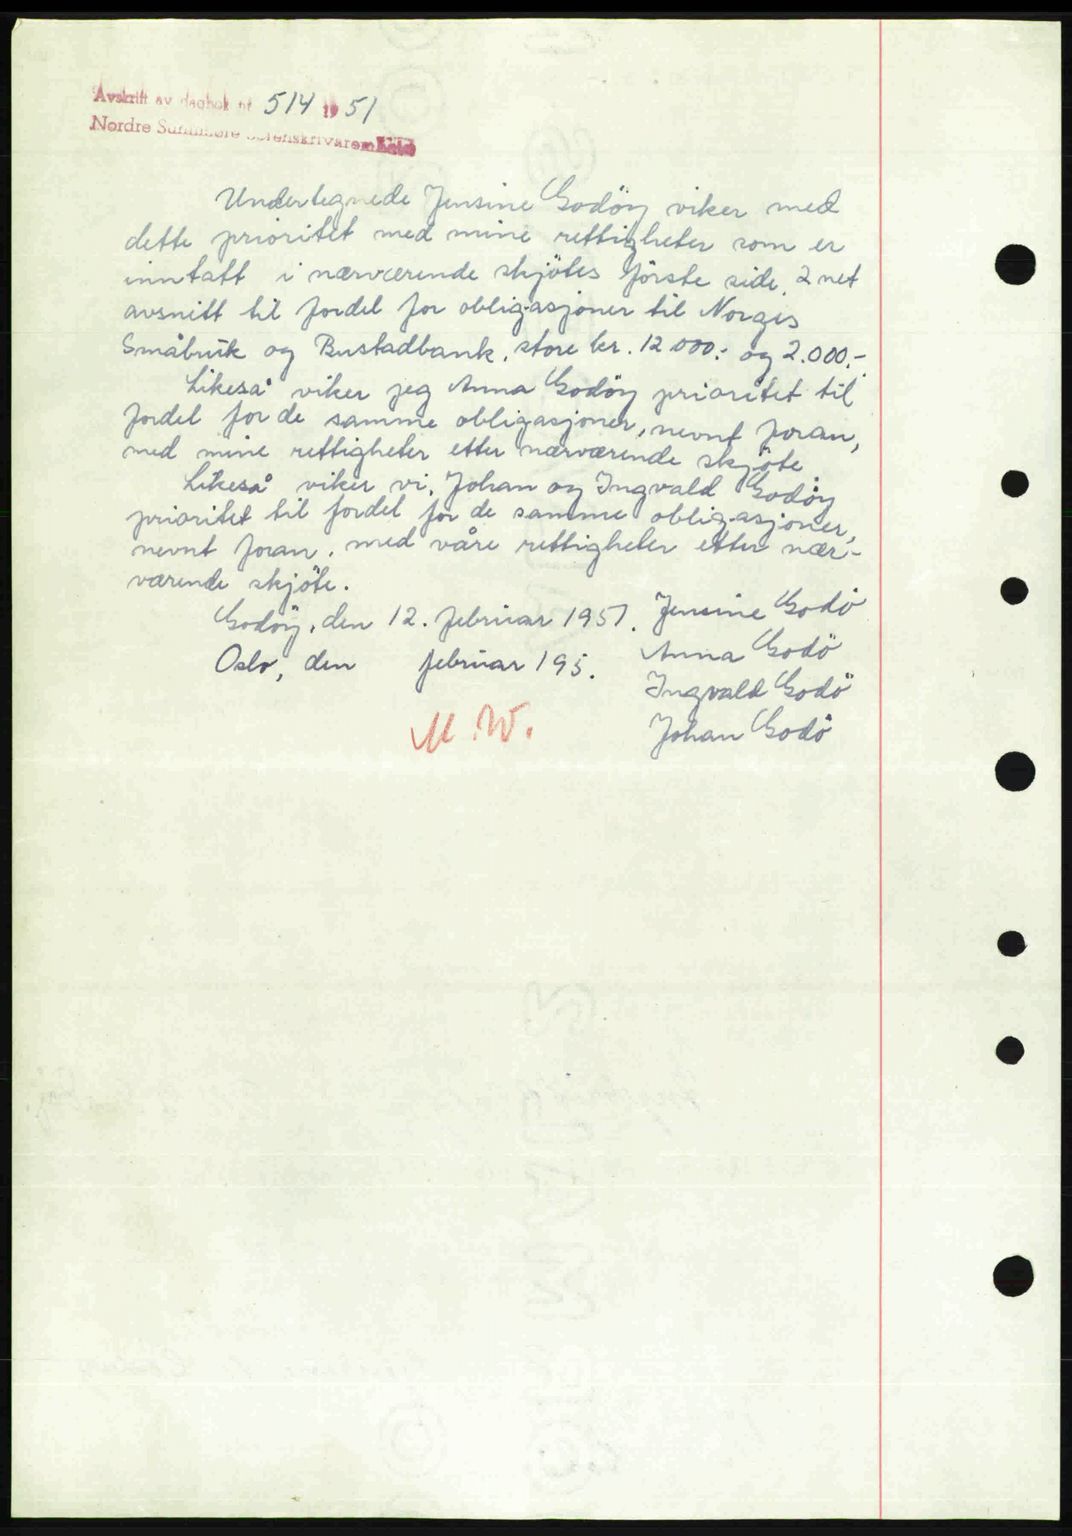 Avskrift av dagbok nr 514 1951
Nordre Sunnmøre Sorenskrivarembete
Undertegnede Jensine Godöy viker med
dette prioritet med mine rettigheter som er
inntatt i nærværende skjötes förste side, 2 net
avsnitt til fordel for obligasjoner til Norges
Småbruk og Bustadbank, store kr. 12 000,- og 2.000,-
Likeså viker jeg Anna Godöy prioritet til
fordel for de samme obligasjoner, nevnt foran,
med mine rettigheter etter nærværende skjöte
Likeså viker vi, Johan og Ingvald Godöy
prioritet til fordel for de samme obligasjoner,
nevnt foran, med våre rettigheter etter nær-
værende skjöte.
Godöy, den 12. februar 1951. Jensine Godö
Oslo, den februar 195. Anna Godö
Ingvald Godö
M. W. Johan Godö